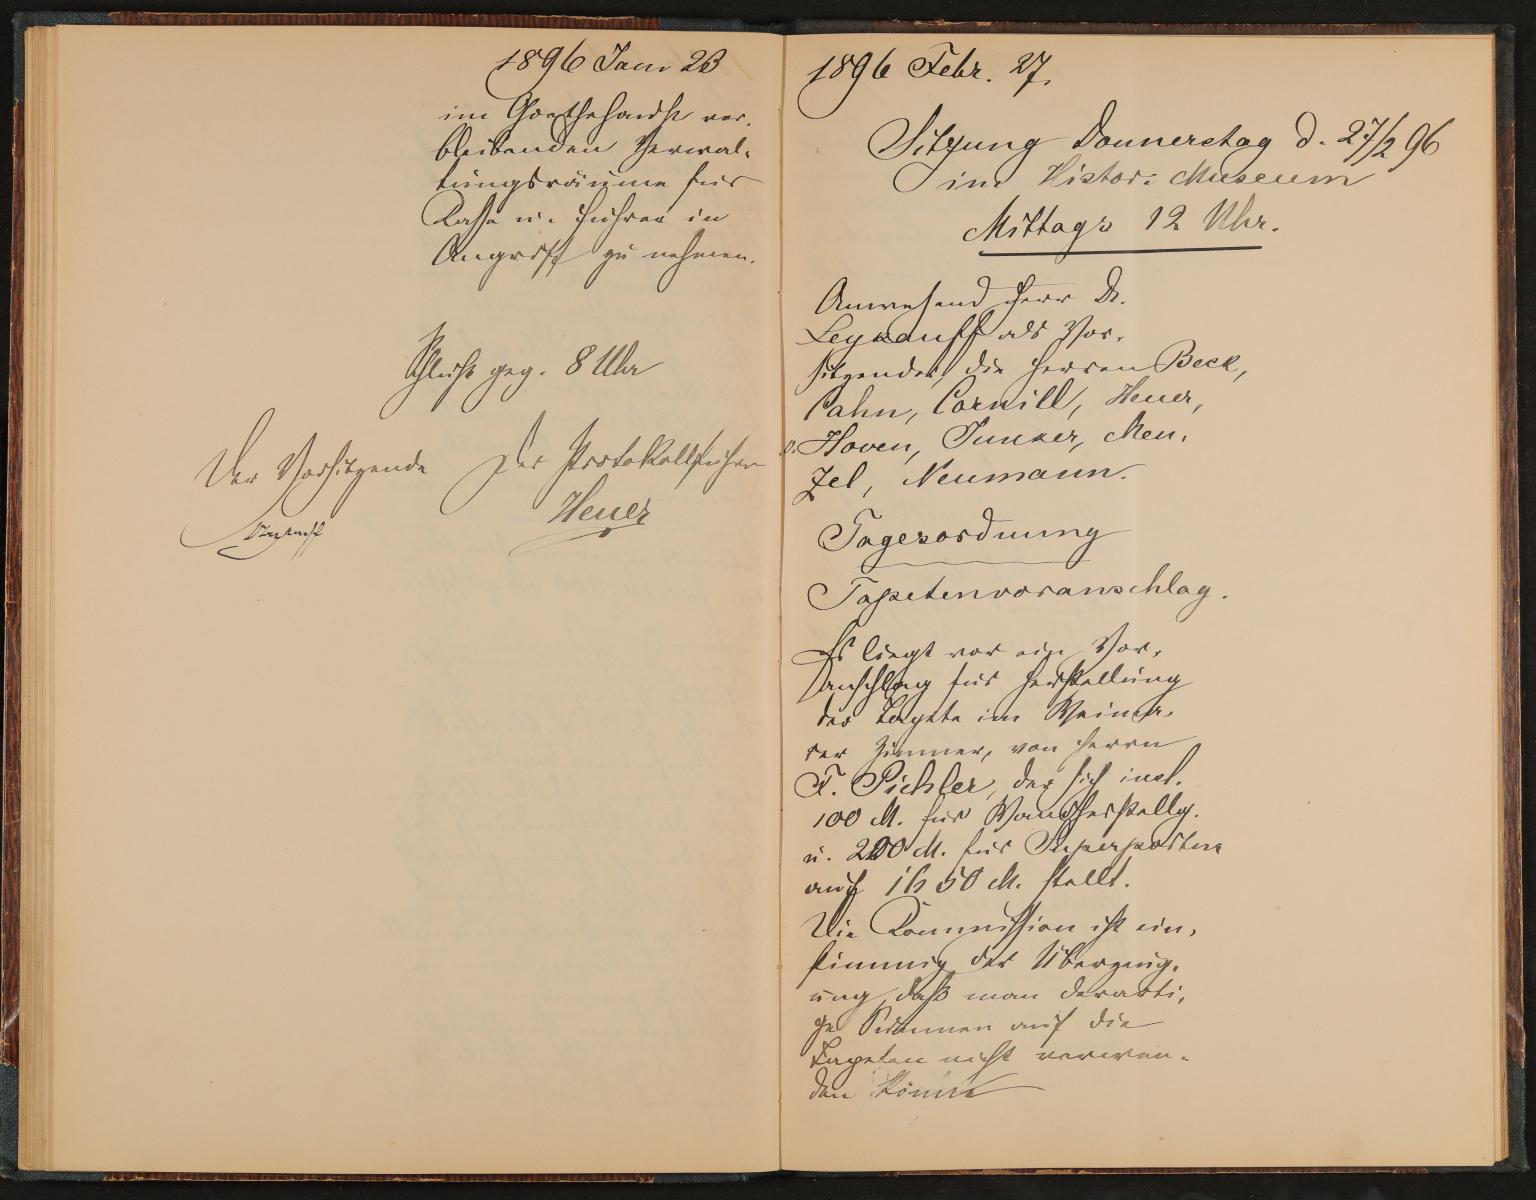 1896 Jan. 23
im Goethehause ver-
bleibenden Verwal-
tungsräume für
Kasse u. Führer in
Angriff zu nehmen.
Schluß geg. 8 Uhr
Der Vorsitzende Der Protokollführer
Heuer
1896 Febr. 27.
Sitzung Donnerstag d. 27/2 96
im Histor: Museum
Mittags 12 Uhr.
Anwesend Herr Dr.
Leykauff als Vor-
sitzender, die Herren Beck,
Cahn, Cornill, Heuer,
v. Hoven, Junker, Men-
zel, Neumann.
Tagesordnung
Tapetenvoranschlag.
Es liegt vor ein Vor-
anschlag für Herstellung
der Tapete im Weima-
rer Zimmer, von Herrn
F. Pichler, der sich incl.
100 M. für Wandherstellg.
u. 200 M. für Superporten
auf 1650 M. stellt.
Die Kommission ist ein-
stimmig der Überzeug-
ung, daß man derarti-
ge Summen auf die
Tapeten nicht verwen-
den könne